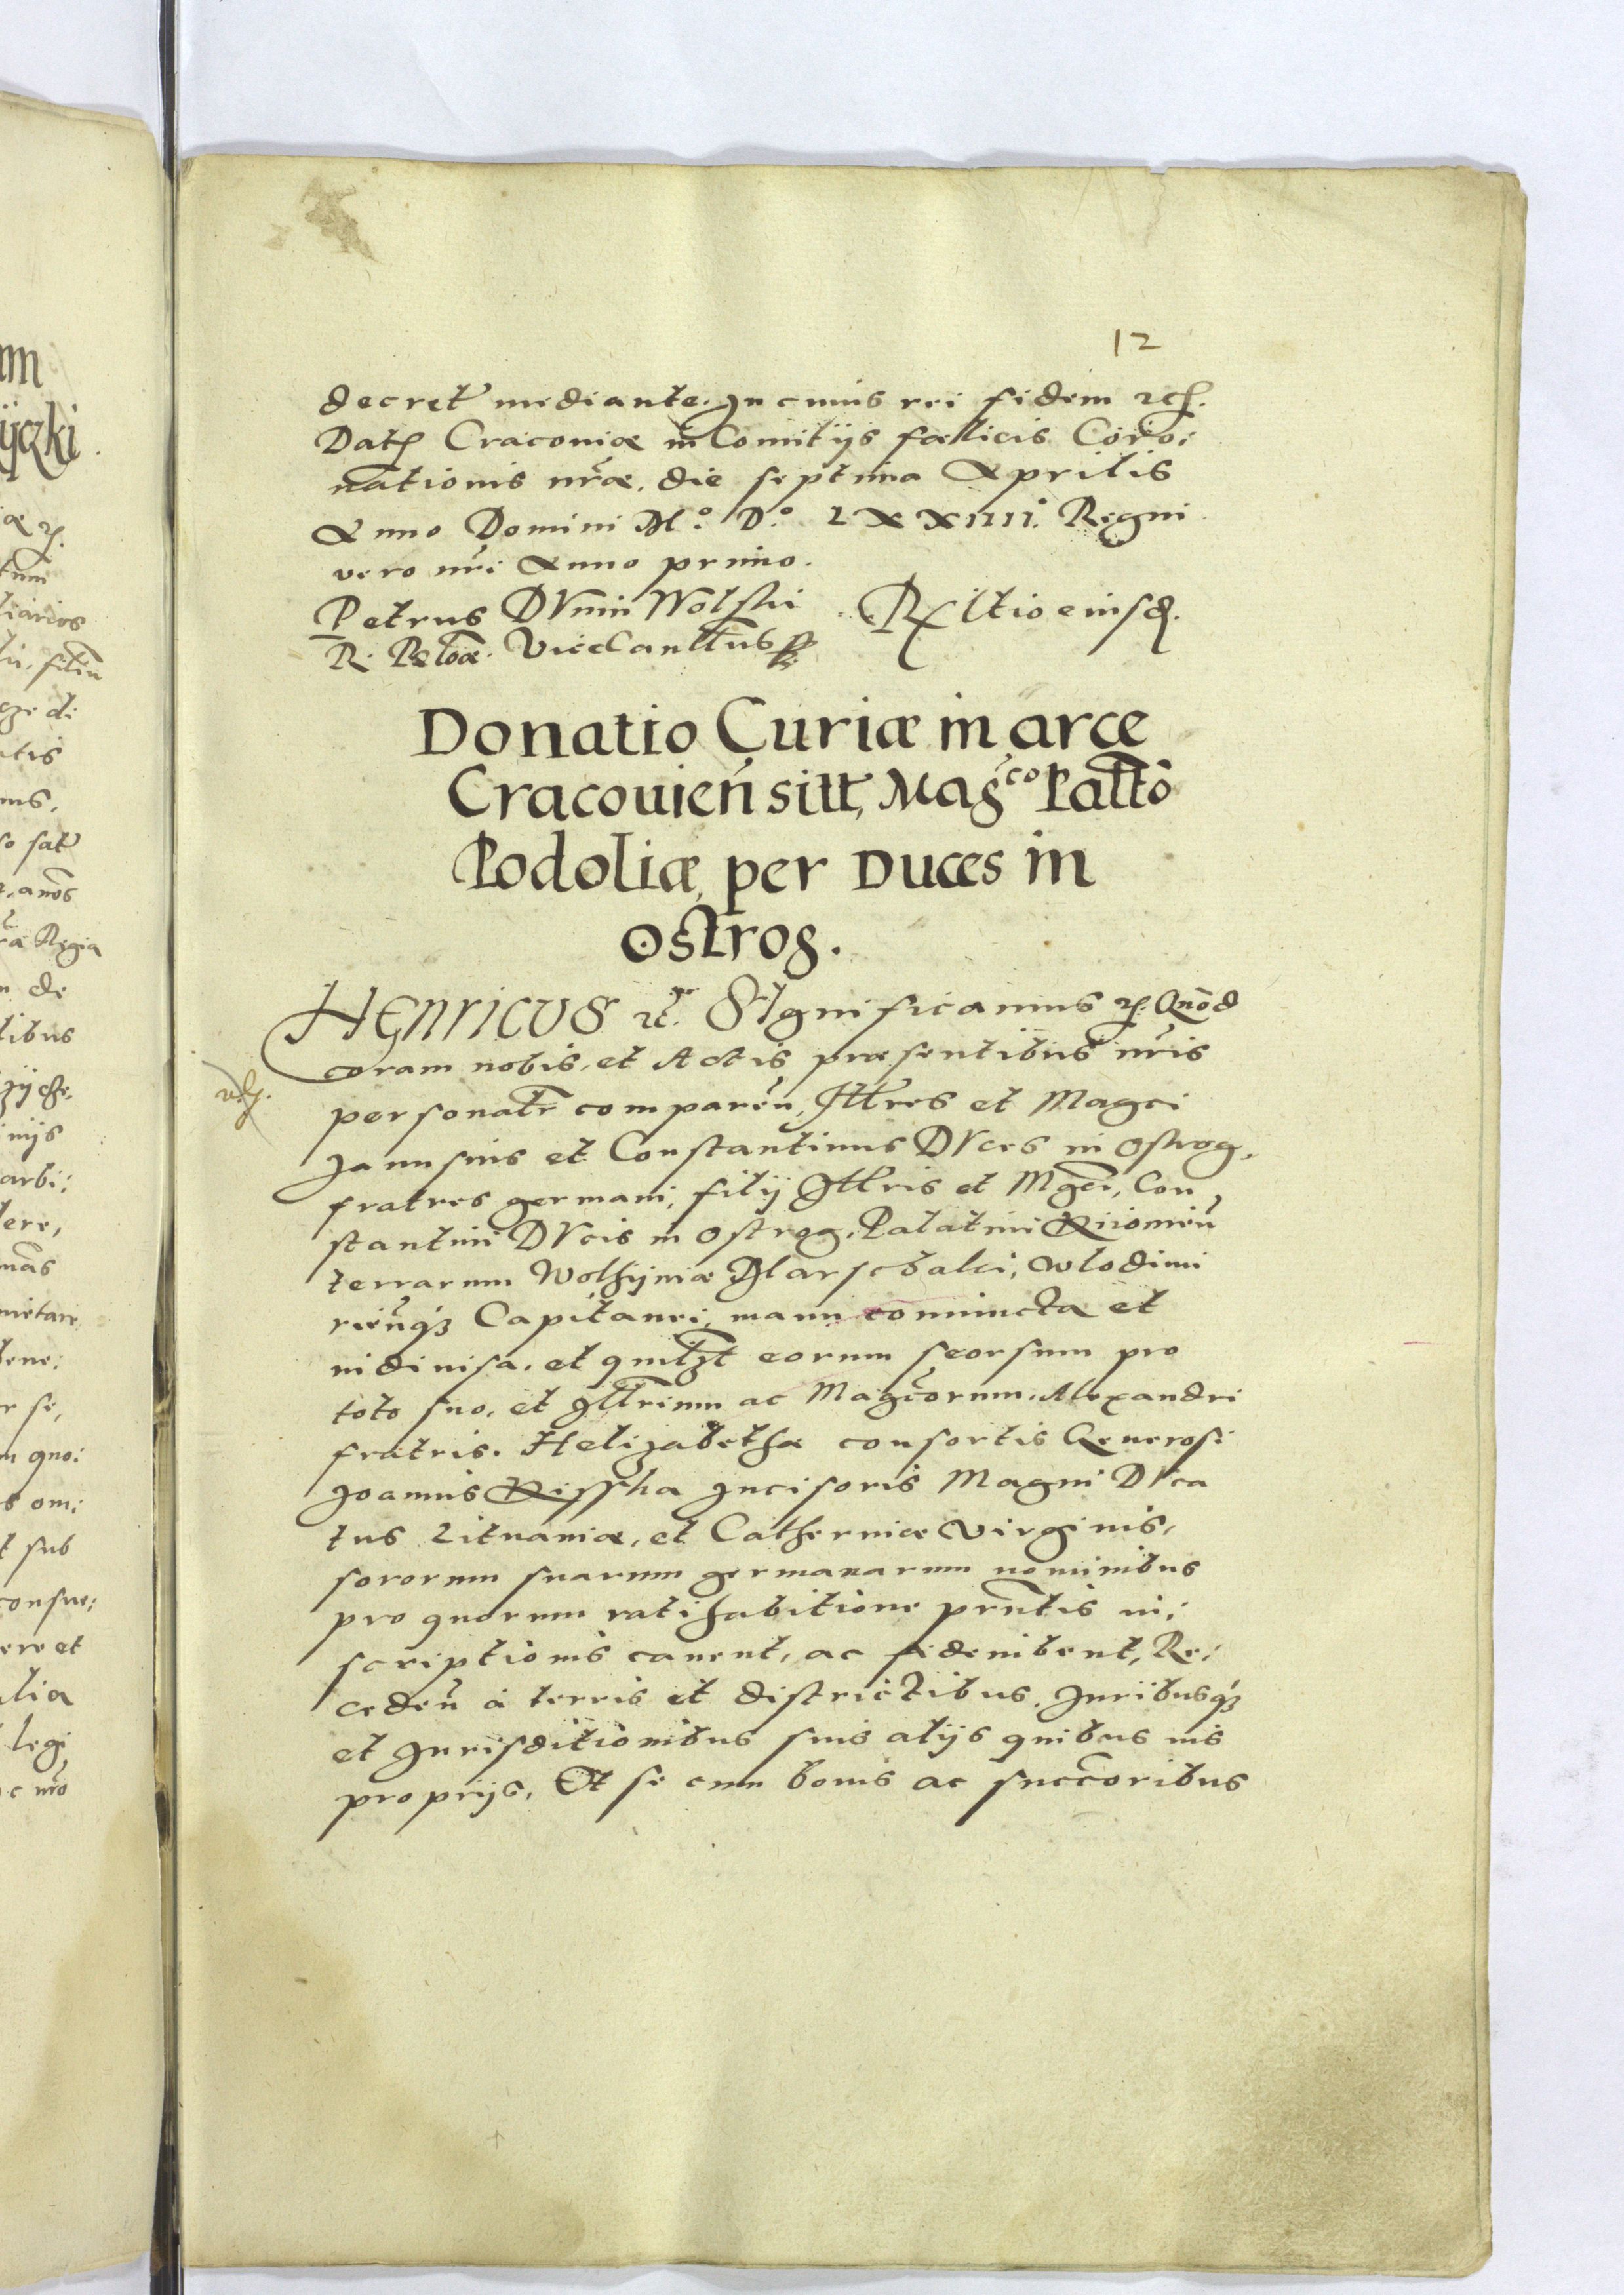 12
decret mediante. In cuius rei fidem etc.
Dat Cracoviæ in Comitijs fœlicis Coro:
nationis nr̃æ, die septima Aprilis
Anno Domini M.º D.º LXXIIII.º Regni
vero nr̃i Anno primo.
Petrus DVnin Wolski
R. Poloñiæ. ViceCancttus
Rltio eiusd.
Donatio Curiæ in arce
Cracouień sitt, Magco Pallto
Podoliæ, per Duces in
Ostrog.
HENRICVS etc. SIgnificamus etc. Quod
coram nobis, et Actis præsentibus nr̃is
personalr̃ comparen̄, Illres et Magci
Janusius et Constantinus DVces in Ostrog,
fratres germani, filij Illris et Mgci, Con
stantini DVcis in Ostrog, Palatini Kiiouien̄
terrarum Wolhijniæ Marschalci, Wlodimi
rien̄qȝ Capitanei, manu coniuncta et
indiuisa, et quilȝt eorum seorsum pro
toto suo, et Illrium ac Magcorum, Alexandri
fratris. Helizabethæ consortis Generosi
Joannis Kisskha Incisoris Magni DVca
tus Lituaniæ, et Catherinæ Virginis,
sororum suarum germanarum nominibus
pro quorum ratihabitione prn̄tis in:
scriptionis cauent, ac fideiubent, Re:
ceden̄ à terris et districtibus, Iuribusqȝ
et Iurisditionibus suis alijs quibus uis
proprijs, Et se cum bonis ac succoribus
am
ijczki.
tum
liarios
filiu
atis
ra Regia
de
tibus
arbi:
tere,
quo:
om:
sub
consue:
ere et
alia
legi